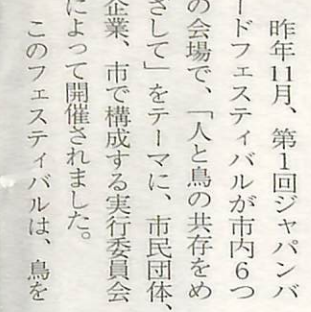 昨年11月、第1回ジャパンバ
ードフェスティバルが市内6つ
の会場で、「人と鳥の共存をめ
ざして」をテーマに、市民団体、
企業、市で構成する実行委員会
によって開催されました。
このフェスティバルは、鳥を